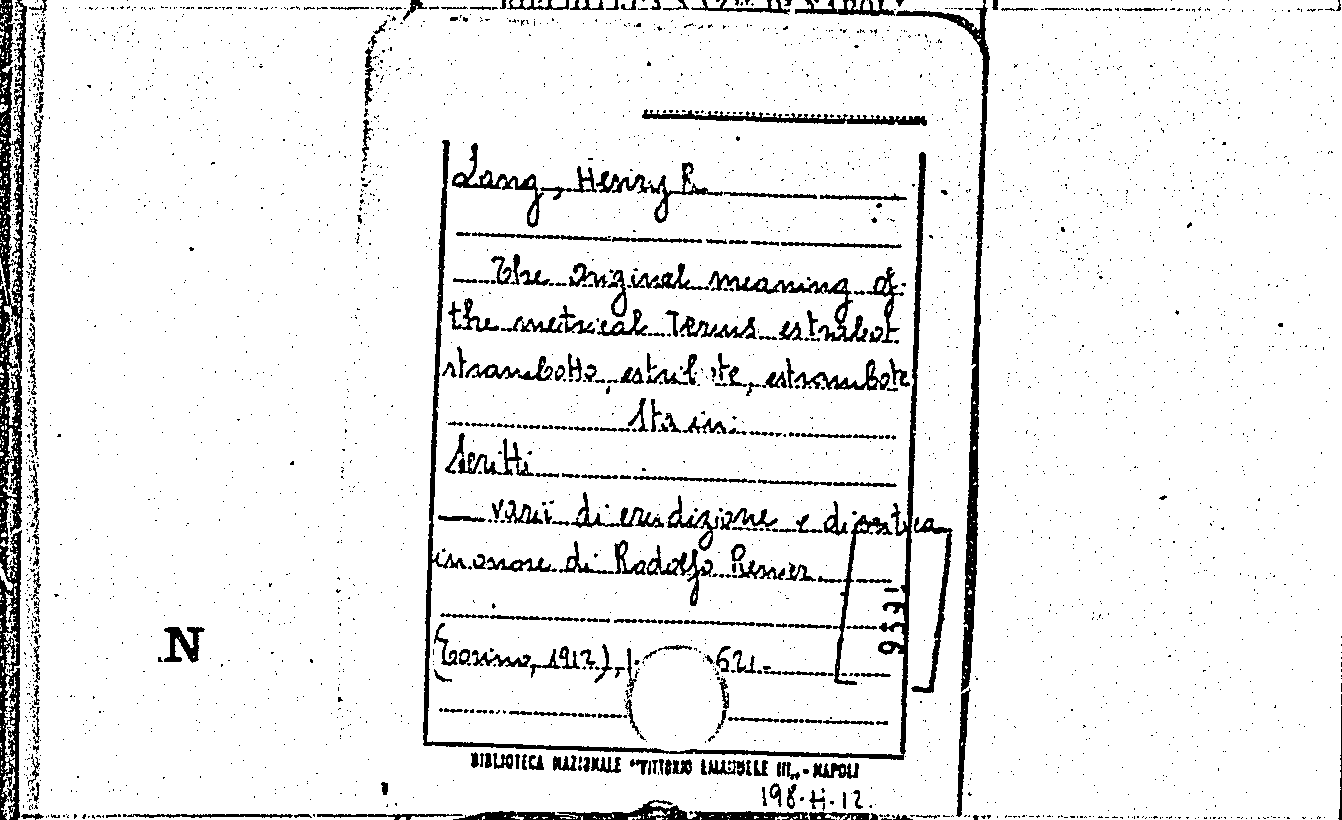 Lang, Henry R.
The original meaning of
the metrical Terms estribot
strambotto, estribote, estrambote
Sta in:
Scritti
varii di erudizione e di critica
in onore di Rodolfo Renier
(Torino, 1912), 621.
9531
N
BIBLIOTECA NAZIONALE "VITTORIO EMANUELE III" - NAPOLI
198-H-12.